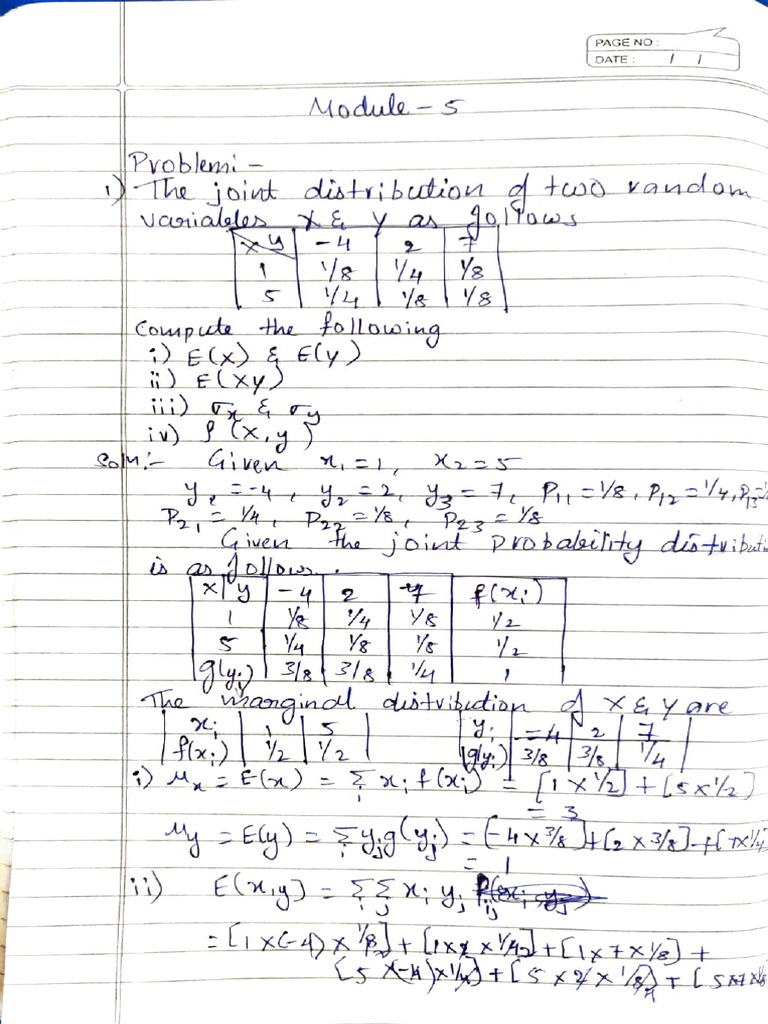 PAGE NO:
DATE: / /
Module - 5
Problem:-
1) The joint distribution of two random
variables X & Y as follows
x y | -4 | 2 | 7
1 | 1/8 | 1/4 | 1/8
5 | 1/4 | 1/8 | 1/8
Compute the following
i) E(X) & E(Y)
ii) E(XY)
iii) σx & σy
iv) ρ(X,Y)
Soln:- Given x1 = 1, x2 = 5
y1 = -4, y2 = 2, y3 = 7, P11 = 1/8, P12 = 1/4, P13 =
P21 = 1/4, P22 = 1/8, P23 = 1/8
Given the joint probability distributi
is as follows.
x y | -4 | 2 | 7 | f(xi)
1 | 1/8 | 1/4 | 1/8 | 1/2
5 | 1/4 | 1/8 | 1/8 | 1/2
g(yj) | 3/8 | 3/8 | 1/4 | 1
The marginal distribution of X & Y are
xi | 1 | 5 | yj | -4 | 2 | 7
f(xi) | 1/2 | 1/2 | g(yj) | 3/8 | 3/8 | 1/4
i) μx = E(x) = Σi xi f(xi) = [1 x 1/2] + [5 x 1/2]
= 3
μy = E(y) = Σj yj g(yj) = [-4 x 3/8] + [2 x 3/8] + [7 x 1/4
= 1
ii) E(x,y) = Σi Σj xi yj Pij
= [1 x (-4) x 1/8] + [1 x 2 x 1/4] + [1 x 7 x 1/8] +
[5 x (-4) x 1/4] + [5 x 2 x 1/8] + [5 x 7 x 1/8